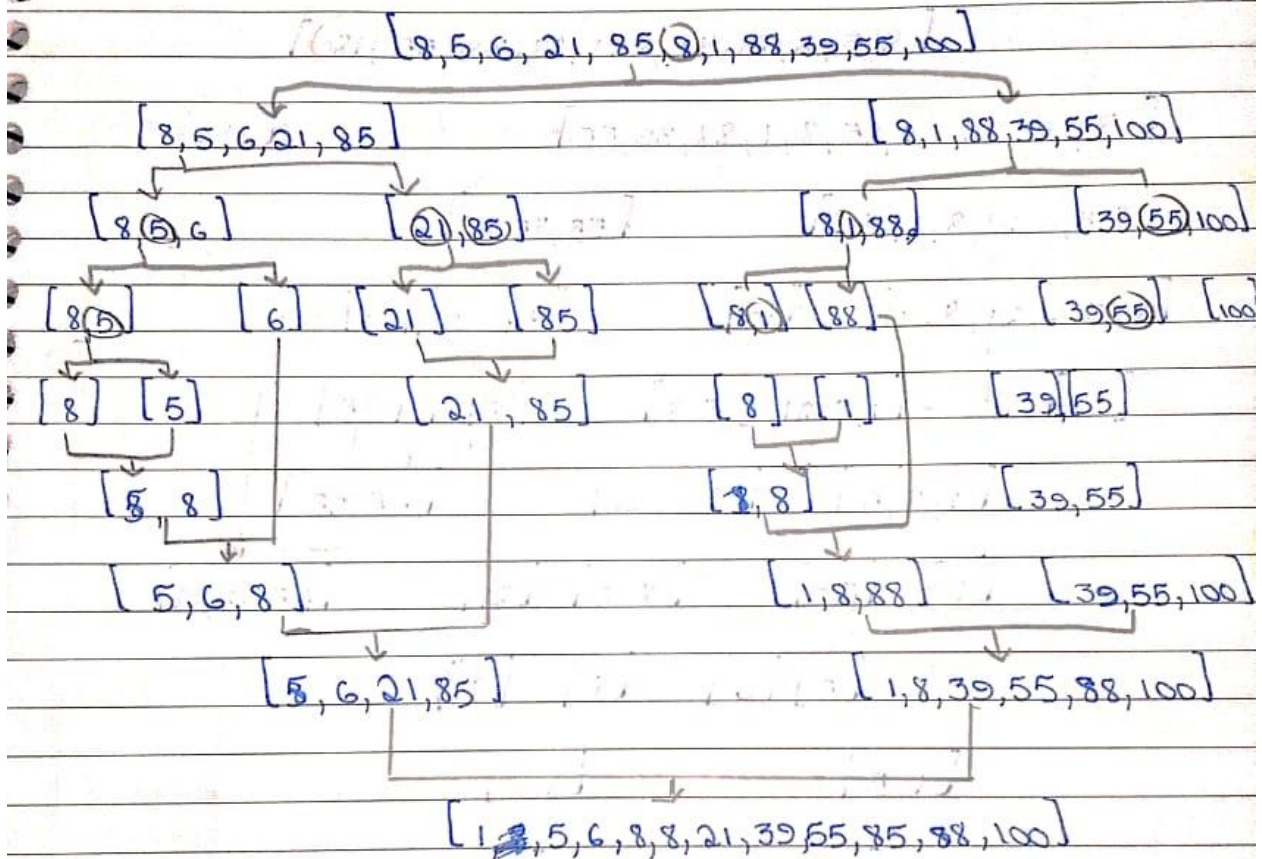 [8, 5, 6, 21, 85, 8, 1, 88, 39, 55, 100]
[8, 5, 6, 21, 85] [8, 1, 88, 39, 55, 100]
[8, 5, 6] [21, 85] [8, 1, 88] [39, 55, 100]
[8, 5] [6] [21] [85] [8, 1] [88] [39, 55] [100
[8] [5] [21, 85] [8] [1] [39][55]
[5, 8] [1, 8] [39, 55]
[5, 6, 8] [1, 8, 88] [39, 55, 100]
[5, 6, 21, 85] [1, 8, 39, 55, 88, 100]
[1, 5, 6, 8, 8, 21, 39, 55, 85, 88, 100]